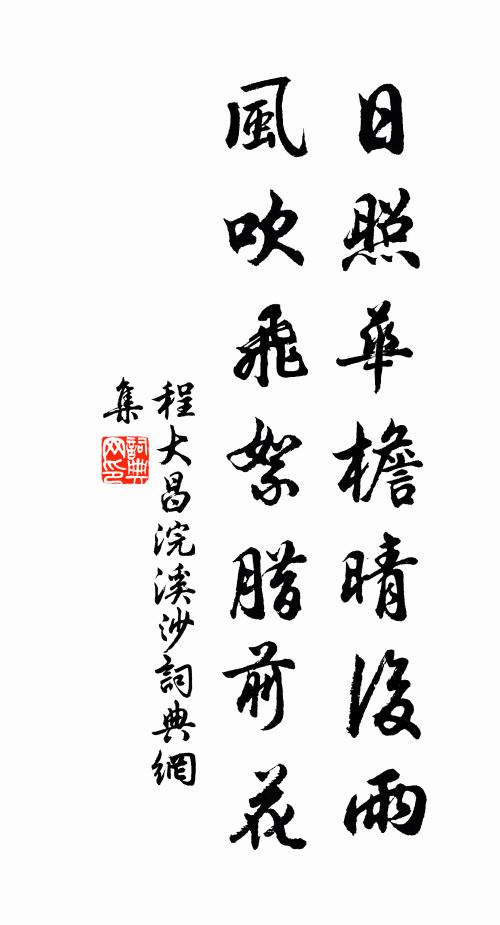 日照華檐晴後雨
風吹飛絮腊前花
程大昌浣溪沙詞典網
集
詞典
网印